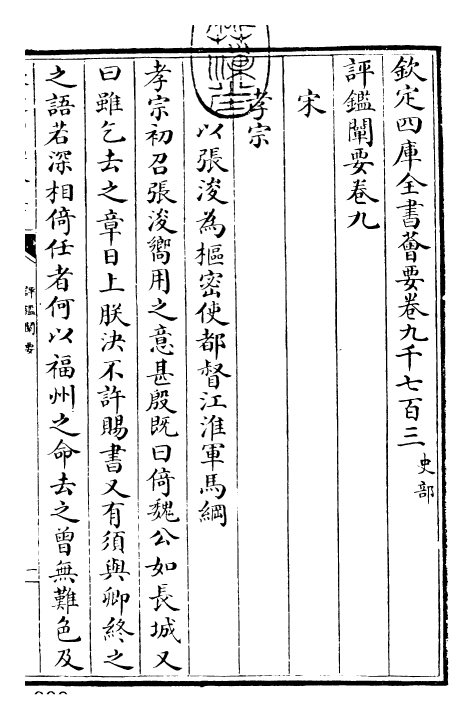 欽定四庫全書薈要卷九千七百三 史部
評鑑闡要卷九
宋
孝宗
以張浚為樞密使都督江淮軍馬綱
孝宗初召張浚嚮用之意甚殷既曰倚魏公如長城又
曰雖乞去之章日上朕決不許賜書又有須與卿終之
之語若深相倚任者何以福州之命去之曾無難色及
評鑑闡要
一